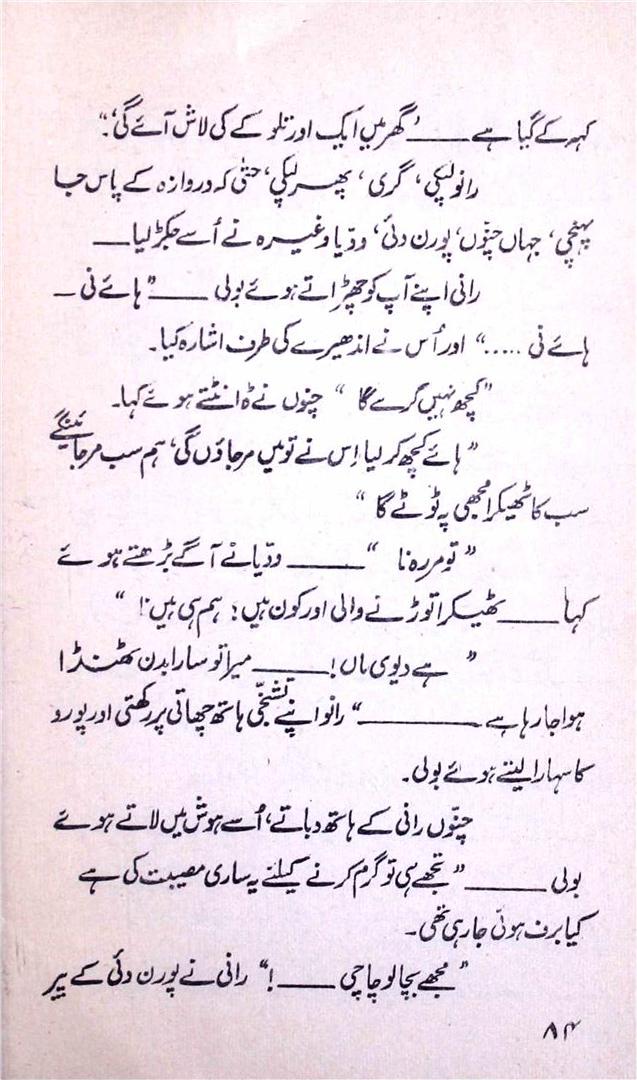 کہہ کے گیا ہے ——— ’گھر میں ایک اور تلوکے کی لاش آئے گی‘۔“
رانو لپکی، گری، پھر لپکی، حتیٰ کہ دروازہ کے پاس جا
پہنچی، جہاں چنّوں، پورن دئی، ودّیا وغیرہ نے اُسے جکڑ لیا——
رانی اپنے آپ کو چھڑاتے ہوئے بولی ———”ہائے نی —
ہائے نی .....“ اور اُس نے اندھیرے کی طرف اشارہ کیا۔
”کچھ نہیں کرے گا“ چنوں نے ڈانٹتے ہوئے کہا۔
”ہائے کچھ کر لیا اِس نے تو میں مر جاؤں گی، ہم سب مر جائینگے
سب کا ٹھیکرا مجھی پہ ٹوٹے گا“
”تو مر رہ نا“——— ودّیا نے آگے بڑھتے ہوئے
کہا ——— ٹھیکرا توڑنے والی اور کون ہیں؛ ہم ہی ہیں نا!“
”ہے دیوی ماں! ——— میرا تو سارا بدن ٹھنڈا
ہوا جا رہا ہے ———“ رانو اپنے تشنجّی ہاتھ چھاتی پر رکھتی اور پورو
کا سہارا لیتے ہوئے بولی۔
چنّوں رانی کے ہاتھ دباتے، اُسے ہوش میں لاتے ہوئے
بولی ———”تجھے ہی تو گرم کرنے کیلئے یہ ساری مصیبت کی ہے
کیا برف ہوئی جا رہی تھی۔
”مجھے بچا لو چاچی ———!“ رانی نے پورن دئی کے پیر
۸۴